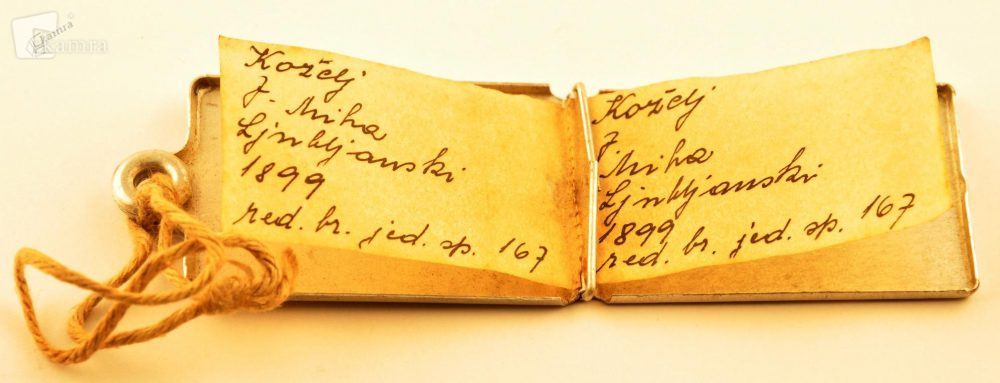 Kamra
Koželj
J. Miha
Ljubljanski
1899
red. br. jed. sp. 167
Koželj
J.
Miha
Ljubljanski
1899
red. br. jed. sp. 167